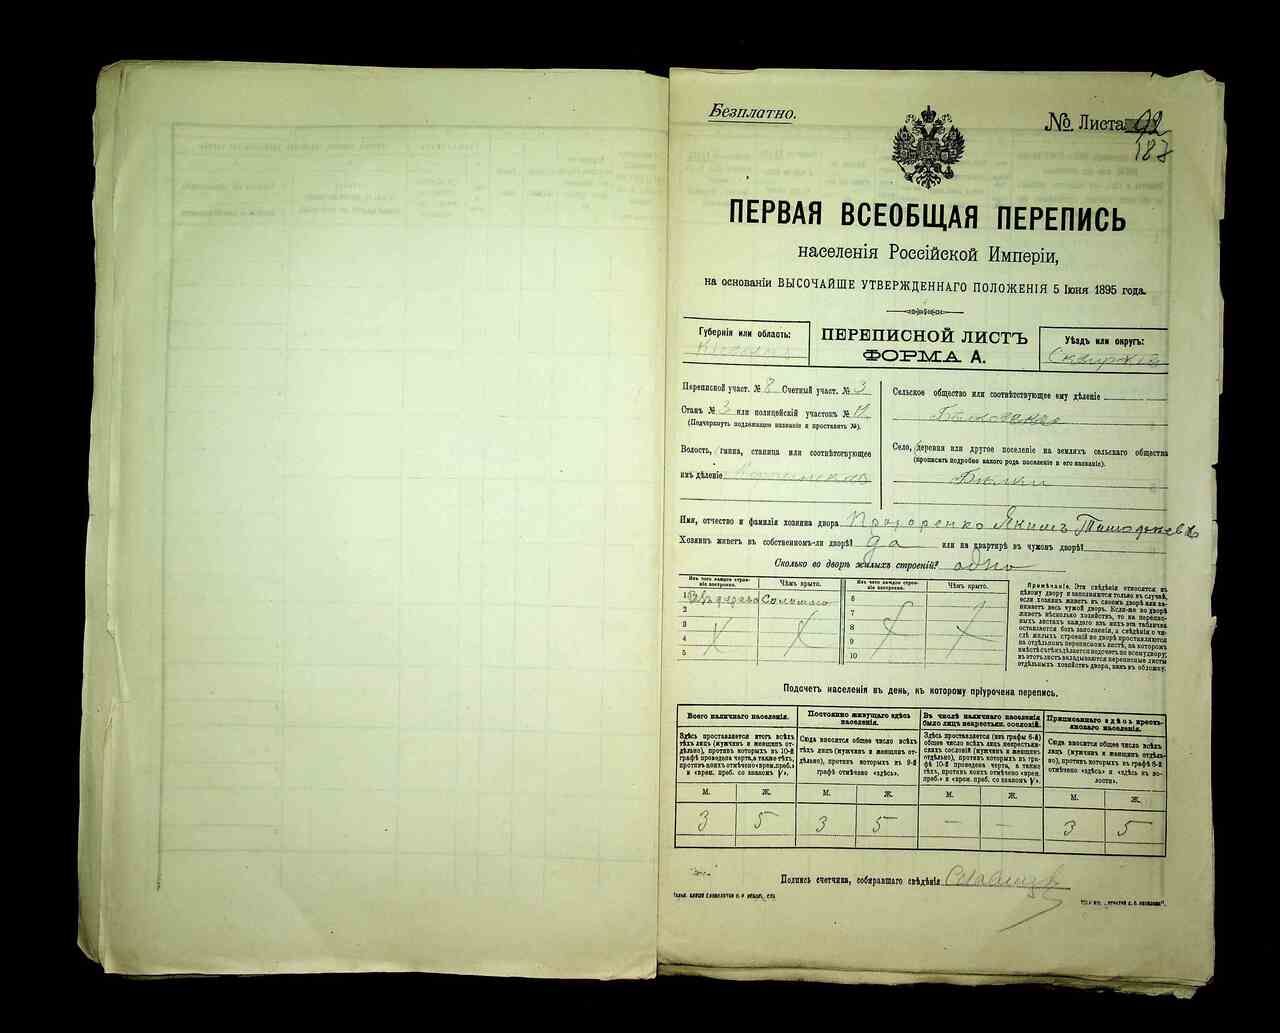 Безплатно.
№ Листа 92
187
ПЕРВАЯ ВСЕОБЩАЯ ПЕРЕПИСЬ
населенія Россійской Имперіи,
на основаніи ВЫСОЧАЙШЕ УТВЕРЖДЕННАГО ПОЛОЖЕНІЯ 5 Іюня 1895 года.
Губернія или область:
ПЕРЕПИСНОЙ ЛИСТЪ
ФОРМА А.
Уѣздъ или округъ:
Переписной участ. № 8 Счетный участ. № 3
Станъ № 3 или полицейскій участокъ №
(Подчеркнуть подлежащее названіе и проставить №).
Волость, гмина, станица или соотвѣтствующее
имъ дѣленіе
Сельское общество или соотвѣтствующее ему дѣленіе
Село, деревня или другое поселеніе на земляхъ сельскаго общества
(прописать подробно какого рода поселеніе и его названіе).
Бѣлки
Имя, отчество и фамилія хозяина двора Прохоренко Якимъ Тимофеевъ
Хозяинъ живетъ въ собственномъ-ли дворѣ? да или на квартирѣ въ чужомъ дворѣ?
Сколько во дворѣ жилыхъ строеній? одно
Изъ чего каждое строеніе построено.
Чѣмъ крыто.
Изъ чего каждое строеніе построено.
Чѣмъ крыто.
1 Изъ дерева Соломою
2
3
4
5
6
7
8
9
10
Примѣчаніе. Эти свѣдѣнія относятся къ
цѣлому двору и заполняются только въ случаѣ,
если хозяинъ живетъ въ своемъ дворѣ или занимаетъ
весь чужой дворъ. Если-же во дворѣ
живетъ нѣсколько хозяйствъ, то на переписныхъ
листахъ каждаго изъ нихъ эта табличка
оставляется безъ заполненія, а свѣдѣнія о числѣ
жилыхъ строеній во дворѣ проставляются
на отдѣльномъ переписномъ листѣ, на которомъ
вмѣстѣ съ тѣмъ дѣлается подсчетъ по всему двору;
въ этотъ листъ вкладываются переписные листы
отдѣльныхъ хозяйствъ двора, какъ въ обложку.
Подсчетъ населенія въ день, къ которому пріурочена перепись.
Всего наличнаго населенія.
Здѣсь проставляется итогъ всѣхъ
тѣхъ лицъ (мужчинъ и женщинъ отдѣльно),
противъ которыхъ въ 10-й
графѣ проведена черта, а также тѣхъ,
противъ коихъ отмѣчено «врем. преб.»
и «врем. преб. со знакомъ V».
Постоянно живущаго здѣсь
населенія.
Сюда вносится общее число всѣхъ
тѣхъ лицъ (мужчинъ и женщинъ отдѣльно),
противъ которыхъ въ 9-й
графѣ отмѣчено «здѣсь».
Въ числѣ наличнаго населенія
было лицъ некрестьян. сословій.
Здѣсь проставляется (изъ графы 6-й)
общее число всѣхъ лицъ некрестьянскихъ
сословій (мужчинъ и женщинъ
отдѣльно), противъ которыхъ въ графѣ
10-й проведена черта, а также
тѣхъ, противъ коихъ отмѣчено «врем.
преб.» и «врем. преб. со знакомъ V».
Приписаннаго здѣсь крестьянскаго
населенія.
Сюда вносится общее число всѣхъ
лицъ (мужчинъ и женщинъ отдѣльно),
противъ которыхъ въ графѣ 8-й
отмѣчено «здѣсь» и «здѣсь въ волости».
М. Ж. М. Ж. М. Ж. М. Ж.
3 5 3 5 — — 3 5
Подпись счетчика, собиравшаго свѣдѣнія